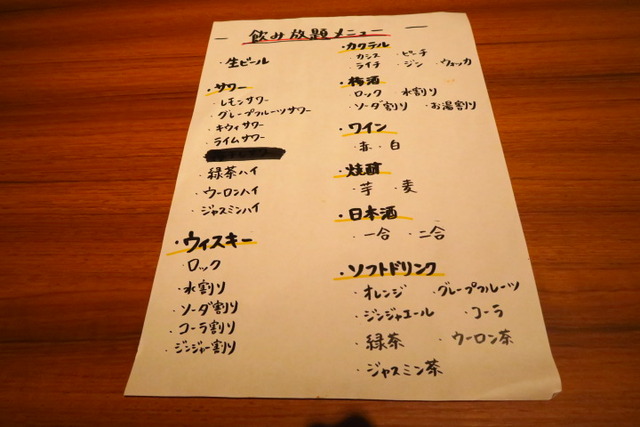 飲み放題メニュー
・生ビール
・サワー
・レモンサワー
・グレープフルーツサワー
・キウイサワー
・ライムサワー
・緑茶ハイ
・ウーロンハイ
・ジャスミンハイ
・ウィスキー
・ロック
・水割り
・ソーダ割り
・コーラ割り
・ジンジャー割り
・カクテル
・カシス ・ピーチ
・ライチ ・ジン ・ウォッカ
・梅酒
・ロック ・水割り
・ソーダ割り ・お湯割り
・ワイン
・赤 ・白
・焼酎
・芋 ・麦
・日本酒
・一合 ・二合
・ソフトドリンク
・オレンジ ・グレープフルーツ
・ジンジャエール ・コーラ
・緑茶 ・ウーロン茶
・ジャスミン茶